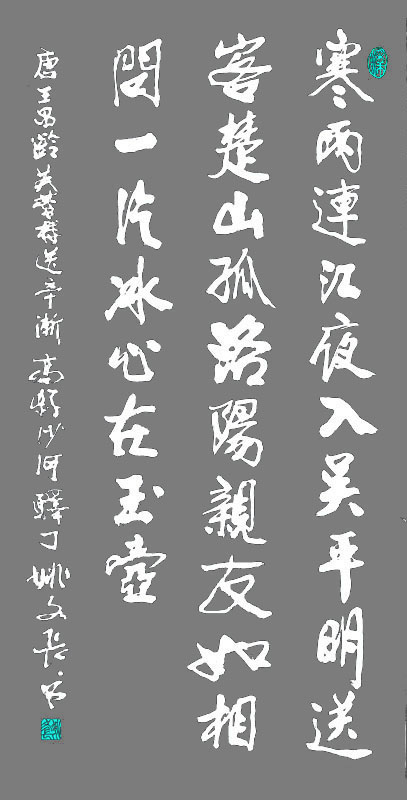 寒雨連江夜入吳平明送
客楚山孤洛陽親友如相
問一片冰心在玉壺
唐王昌齡芙蓉樓送辛漸 高縣沙河驛丁姚文長书